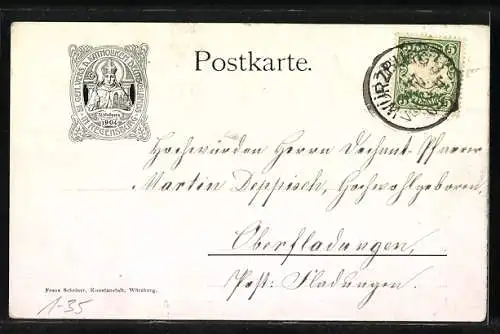 Postkarte.
REGENSBURG
1904
WÜRZBURG
5
5
Hochwürden Herrn Dechant-Pfarrer
Martin Deppisch, Hochwohlgeboren,
Oberfladungen,
Post: Fladungen.
Franz Scheiner, Kunstanstalt, Würzburg.
1-35